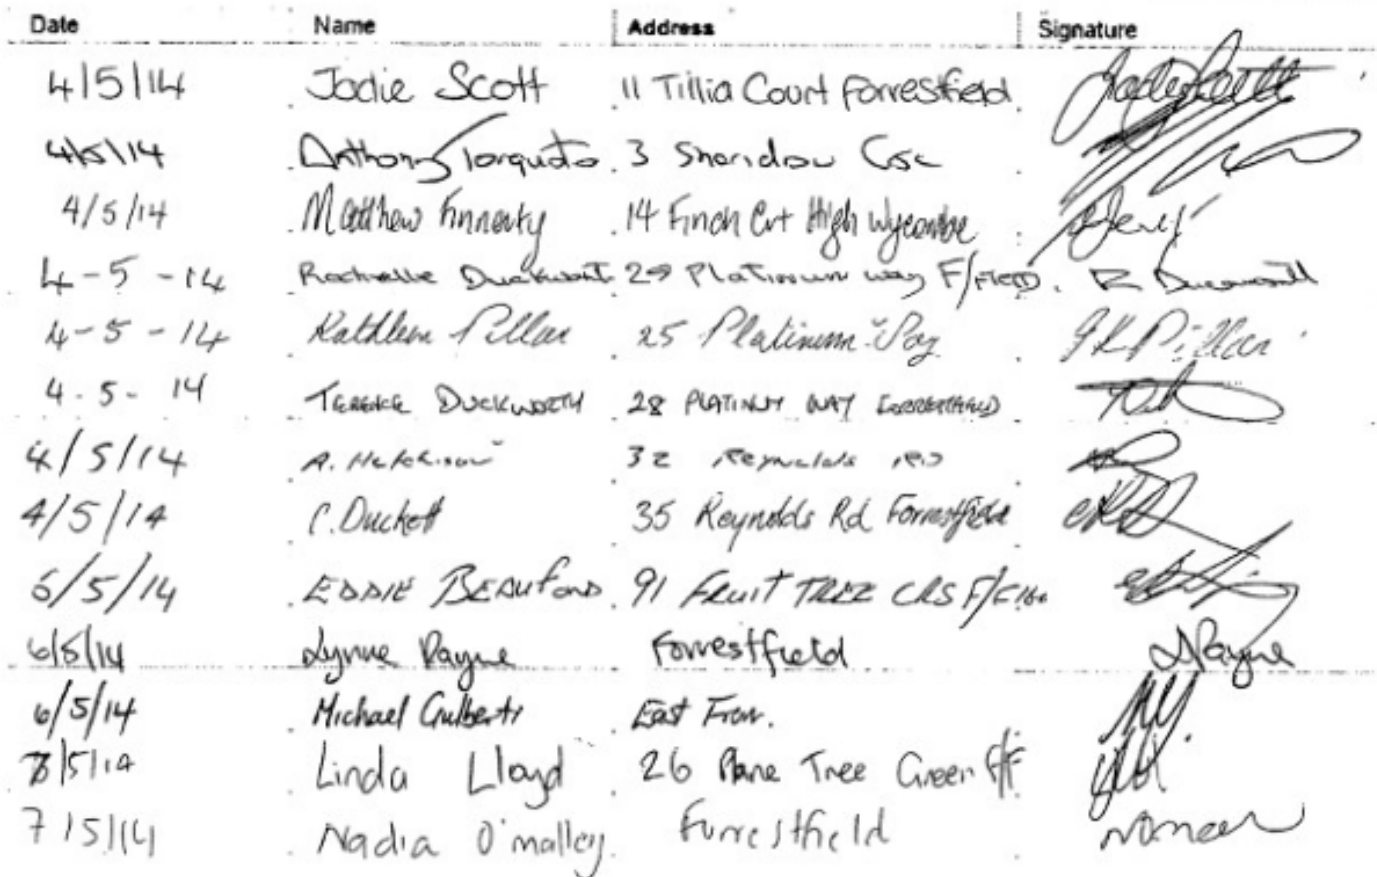 Date Name Address Signature
4/5/14 Jodie Scott 11 Tillia Court Forrestfield
4/5/14 Anthony Torquato 3 Sheridan
4/5/14 Matthew Finnerty 14 Finch Crt High Wycombe
4-5-14 Rachelle Duckwort Platinum way F/FIELD. R Duckworth
4-5-14 Kathleen Pillar 25 Platinum Way J K Pillar
4-5-14 TERENCE DUCKWORTH 28 PLATINUM WAY
4/5/14 A. 32 Reynolds RD
4/5/14 C. Duckett 35 Reynolds Rd Forrestfield
6/5/14 EDDIE 91 FRUIT TREE CRS
6/5/14 Lynne Payne Forrestfield LPayne
6/5/14 Michael East Fron.
5/14 Linda Lloyd 26 Plane Tree Green F/F
7/5/14 Nadia O'malley Forrestfield